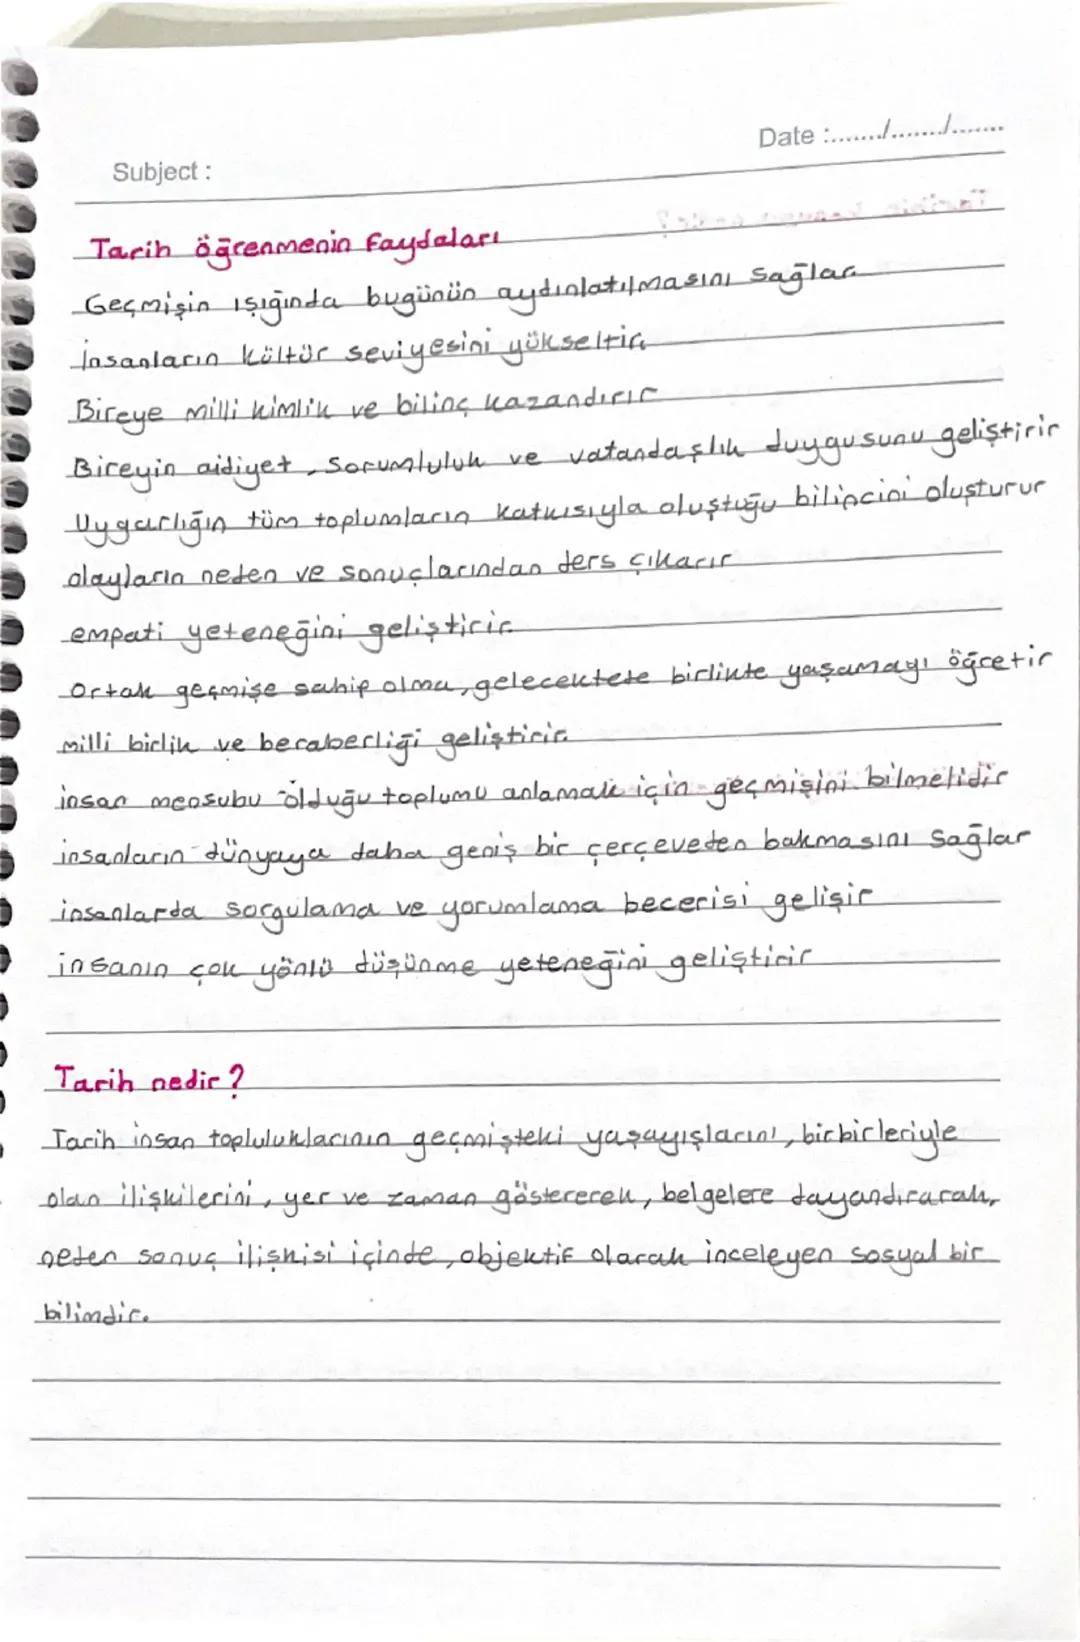 Date :......./......./.......
Subject :
Tarih öğrenmenin faydaları
Geçmişin ışığında bugünün aydınlatılmasını sağlar
İnsanların kültür seviyesini yükseltir.
Bireye milli kimlik ve bilinç kazandırır
Bireyin aidiyet, sorumluluk ve vatandaşlık duygusunu geliştirir
Uygarlığın tüm toplumların katkısıyla oluştuğu bilincini oluşturur
olayların neden ve sonuçlarından ders çıkarır
empati yeteneğini geliştirir.
Ortak geçmişe sahip olma, gelecektede birlikte yaşamayı öğretir
milli birlik ve beraberliği geliştirir.
insan mensubu olduğu toplumu anlamak için geçmişini bilmelidir
insanların dünyaya daha geniş bir çerçeveden bakmasını sağlar
insanlarda sorgulama ve yorumlama becerisi gelişir
insanın çok yönlü düşünme yeteneğini geliştirir
Tarih nedir?
Tarih insan topluluklarının geçmişteki yaşayışlarını, birbirleriyle
olan ilişkilerini, yer ve zaman göstererek, belgelere dayandırarak,
neden sonuç ilişkisi içinde, objektif olarak inceleyen sosyal bir
bilimdir.